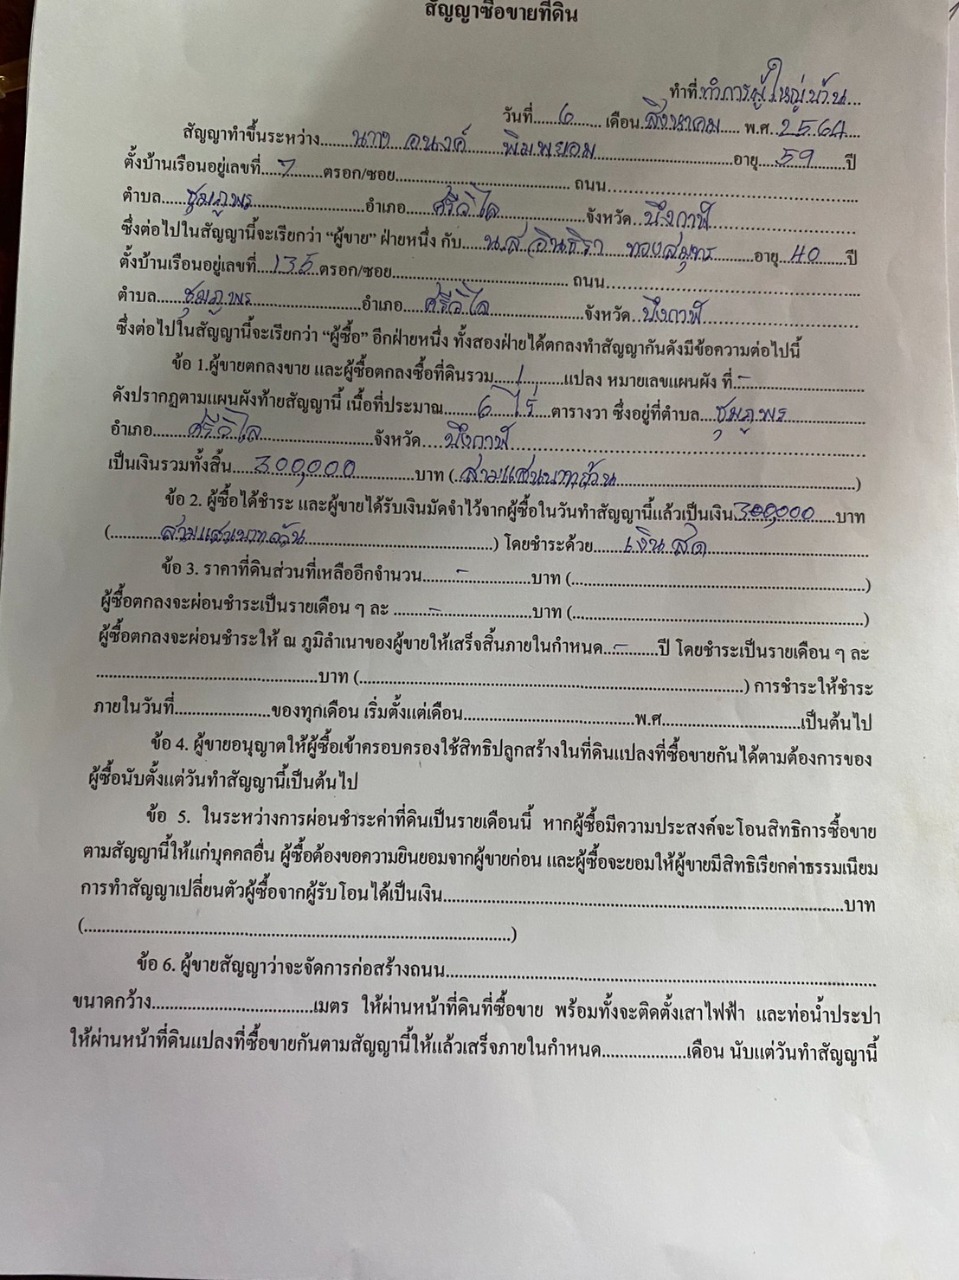 สัญญาซื้อขายที่ดิน
ทำที่ทำการผู้ใหญ่บ้าน...
วันที่......6....... เดือน.สิงหาคม..... พ.ศ..2564....
สัญญาทำขึ้นระหว่าง.......นาง อนงค์ พิมพยอม..............................อายุ.....59......ปี
ตั้งบ้านเรือนอยู่เลขที่....7.......ตรอก/ซอย........................................ ถนน..........................................
ตำบล.....ชุมภูพร....................อำเภอ....ศรีวิไล....................จังหวัด..บึงกาฬ..............................
ซึ่งต่อไปในสัญญานี้จะเรียกว่า “ผู้ขาย” ฝ่ายหนึ่ง กับ.....น.ส.อินธิรา ทองสมุทร........อายุ...40......ปี
ตั้งบ้านเรือนอยู่เลขที่...135..ตรอก/ซอย........................................ ถนน..........................................
ตำบล.....ชุมภูพร....................อำเภอ....ศรีวิไล....................จังหวัด..บึงกาฬ..............................
ซึ่งต่อไปในสัญญานี้จะเรียกว่า “ผู้ซื้อ” อีกฝ่ายหนึ่ง ทั้งสองฝ่ายได้ตกลงทำสัญญากันดังมีข้อความต่อไปนี้
ข้อ 1.ผู้ขายตกลงขาย และผู้ซื้อตกลงซื้อที่ดินรวม......1........แปลง หมายเลขแผนผัง ที่..-........................
ดังปรากฏตามแผนผังท้ายสัญญานี้ เนื้อที่ประมาณ........6 ไร่...ตารางวา ซึ่งอยู่ที่ตำบล...ชุมภูพร..............
อำเภอ......ศรีวิไล......................จังหวัด....บึงกาฬ.............................................................
เป็นเงินรวมทั้งสิ้น.....300,000............บาท (..สามแสนบาทถ้วน.......................................)
ข้อ 2. ผู้ซื้อได้ชำระ และผู้ขายได้รับเงินมัดจำไว้จากผู้ซื้อในวันทำสัญญานี้แล้วเป็นเงิน300,000.....บาท
(...........สามแสนบาทถ้วน.......................................) โดยชำระด้วย.......เงินสด...............................
ข้อ 3. ราคาที่ดินส่วนที่เหลืออีกจำนวน........-..............บาท (...................................................................)
ผู้ซื้อตกลงจะผ่อนชำระเป็นรายเดือน ๆ ละ ........-....................บาท (...................................................................)
ผู้ซื้อตกลงจะผ่อนชำระให้ ณ ภูมิลำเนาของผู้ขายให้เสร็จสิ้นภายในกำหนด...-.........ปี โดยชำระเป็นรายเดือน ๆ ละ
...................................................บาท (.........................................................................................) การชำระให้ชำระ
ภายในวันที่......................ของทุกเดือน เริ่มตั้งแต่เดือน.......................................พ.ศ................................เป็นต้นไป
ข้อ 4. ผู้ขายอนุญาตให้ผู้ซื้อเข้าครอบครองใช้สิทธิปลูกสร้างในที่ดินแปลงที่ซื้อขายกันได้ตามต้องการของ
ผู้ซื้อนับตั้งแต่วันทำสัญญานี้เป็นต้นไป
ข้อ 5. ในระหว่างการผ่อนชำระค่าที่ดินเป็นรายเดือนนี้ หากผู้ซื้อมีความประสงค์จะโอนสิทธิการซื้อขาย
ตามสัญญานี้ให้แก่บุคคลอื่น ผู้ซื้อต้องขอความยินยอมจากผู้ขายก่อน และผู้ซื้อจะยอมให้ผู้ขายมีสิทธิเรียกค่าธรรมเนียม
การทำสัญญาเปลี่ยนตัวผู้ซื้อจากผู้รับโอนได้เป็นเงิน.............................................................................................บาท
(...................................................................................................)
ข้อ 6. ผู้ขายสัญญาว่าจะจัดการก่อสร้างถนน....................................................................................................
ขนาดกว้าง.....................................เมตร ให้ผ่านหน้าที่ดินที่ซื้อขาย พร้อมทั้งจะติดตั้งเสาไฟฟ้า และท่อน้ำประปา
ให้ผ่านหน้าที่ดินแปลงที่ซื้อขายกันตามสัญญานี้ให้แล้วเสร็จภายในกำหนด...................เดือน นับแต่วันทำสัญญานี้